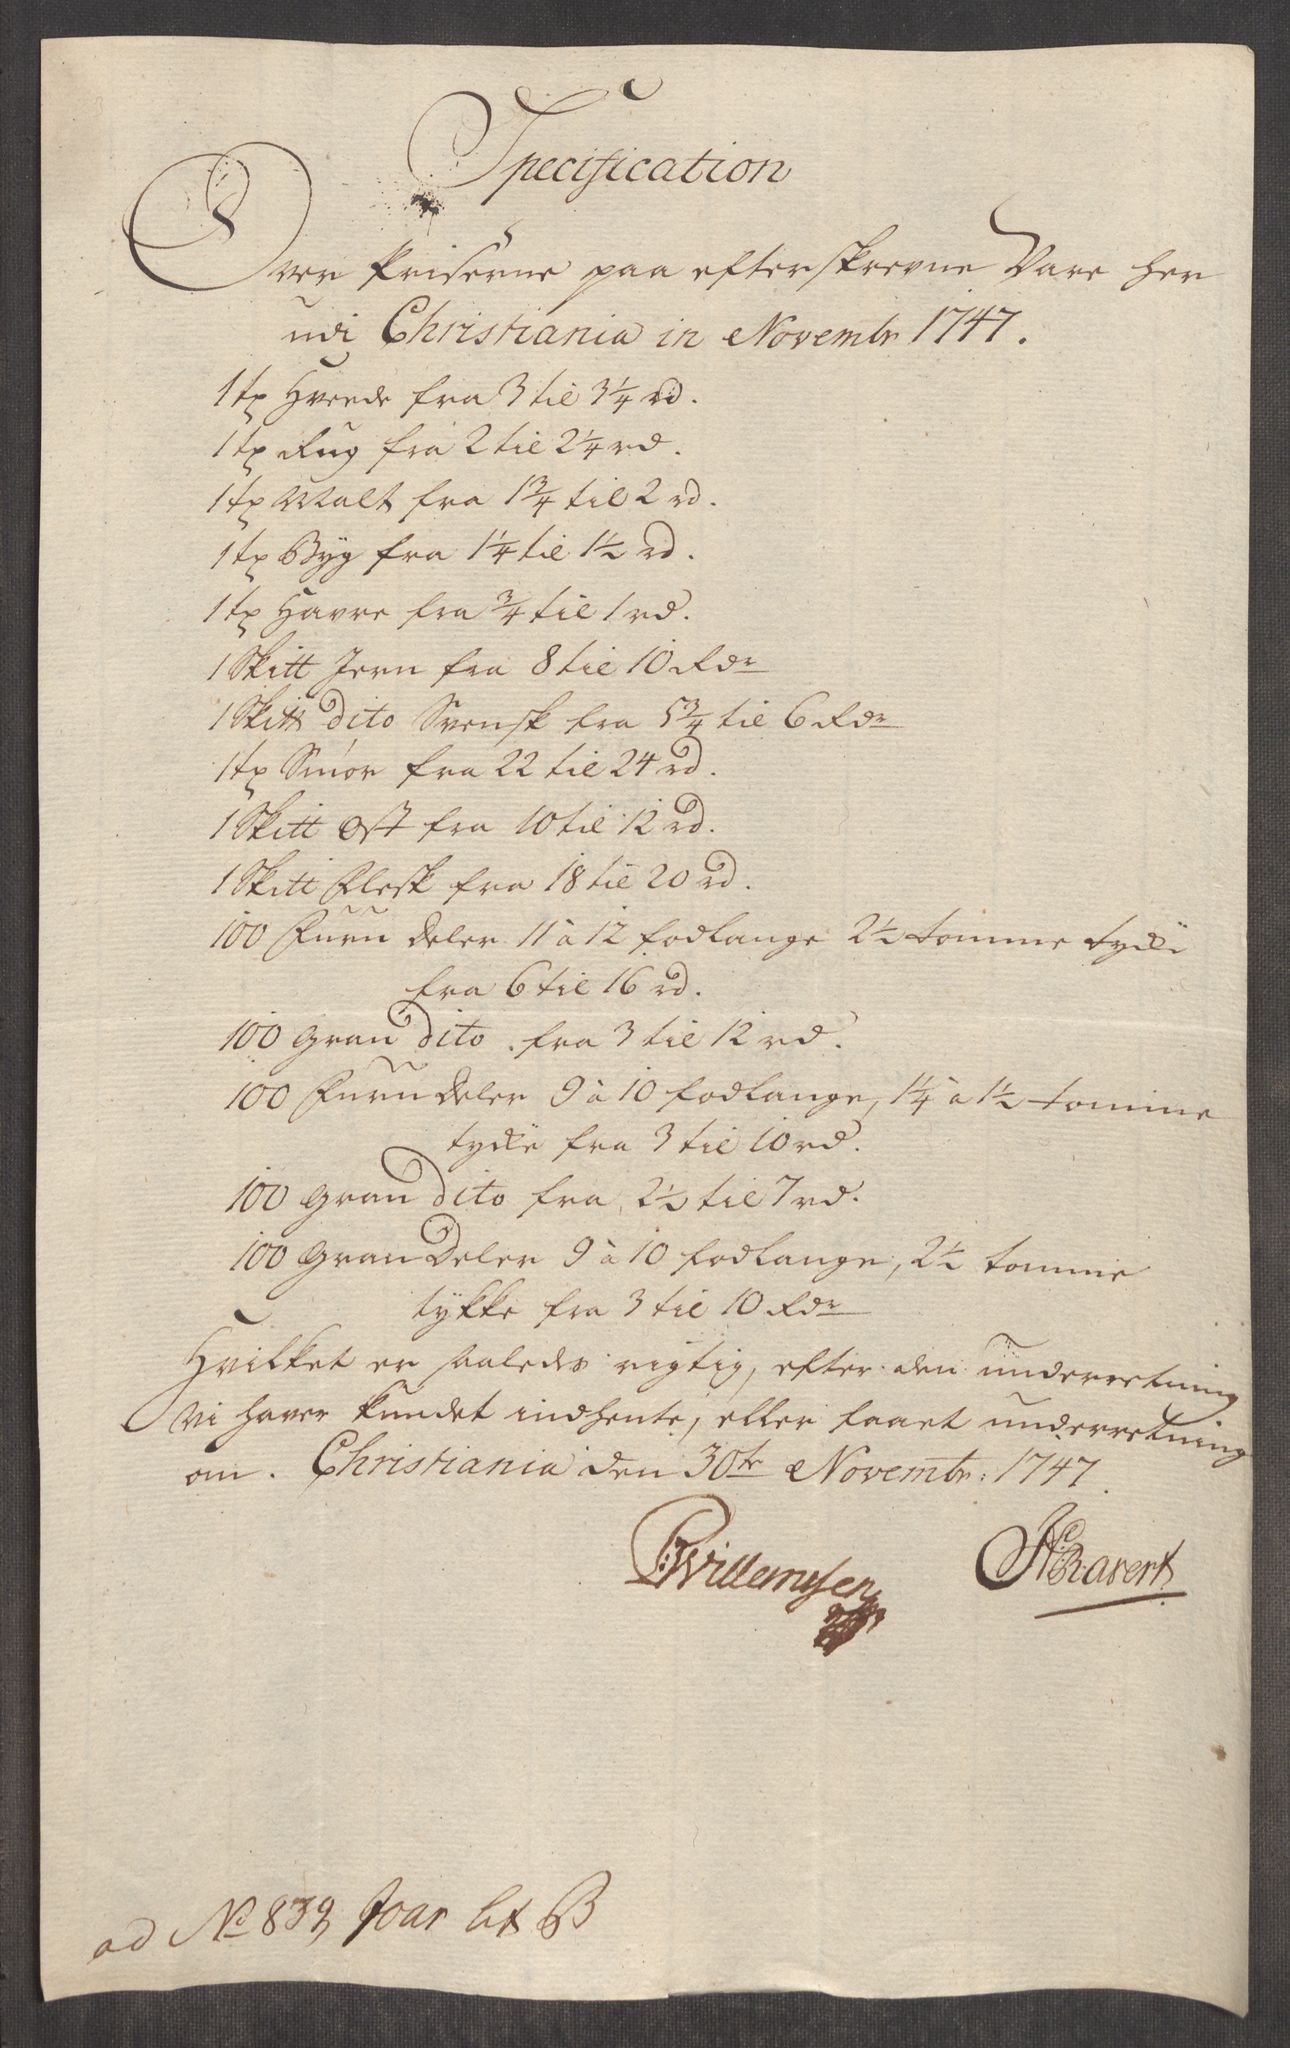 Specification
Over Priserne paa efterskrevne Vare her
udi Christiania in Novembr 1747.
1 tø Hvede fra 3 til 3 1/4 rd.
1 tø Rug fra 2 til 2 1/4 rd.
1 tø Malt fra 1 3/4 til 2 rd.
1 tø Byg fra 1 1/4 til 1 1/2 rd.
1 tø Havre fra 3/4 til 1 rd.
1 Skitt Jern fra 8 til 10 Rdr
1 Skitt dito Svensk fra 5 3/4 til 6 Rdr
1 tø Smör fra 22 til 24 rd.
1 Skitt Ost fra 10 til 12 rd.
1 Skitt Flesk fra 18 til 20 rd.
100 Furu deler 11 à 12 fodlange 2 1/2 tomme tykke
fra 6 til 16 rd.
100 Gran dito fra 3 til 12 rd.
100 Furu deler 9 à 10 fodlange, 1 1/4 à 1 1/2 tomme
tykke fra 3 til 10 rd.
100 Gran dito fra 2 1/2 til 7 rd.
100 Gran Deler 9 à 10 fodlange, 2 1/2 tomme
tykke fra 3 til 10 Rdr
Hvilket er saaledes rigtig, efter den underretning
vi haver kundet indhente, eller faaet underretning
om. Christiania den 30te Novembr: 1747.
Willemsen Ravert
ad No 839 Foar lit B